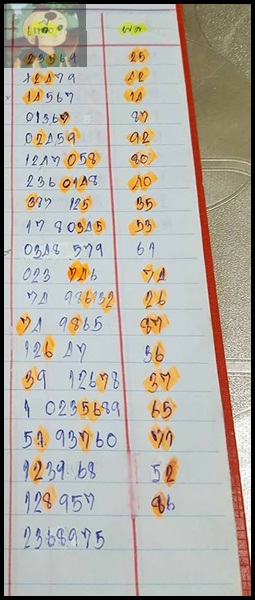 23569 25
12479 42
14567 14
01367 87
02459 92
1247 058 80
236 0148 40
387 125 35
178 0345 53
0348 579 61
023 746 74
74 986132 26
74 9865 87
126 47 36
39 12678 37
1 0235689 65
57 93760 77
1239 68 52
128 957 86
2368975